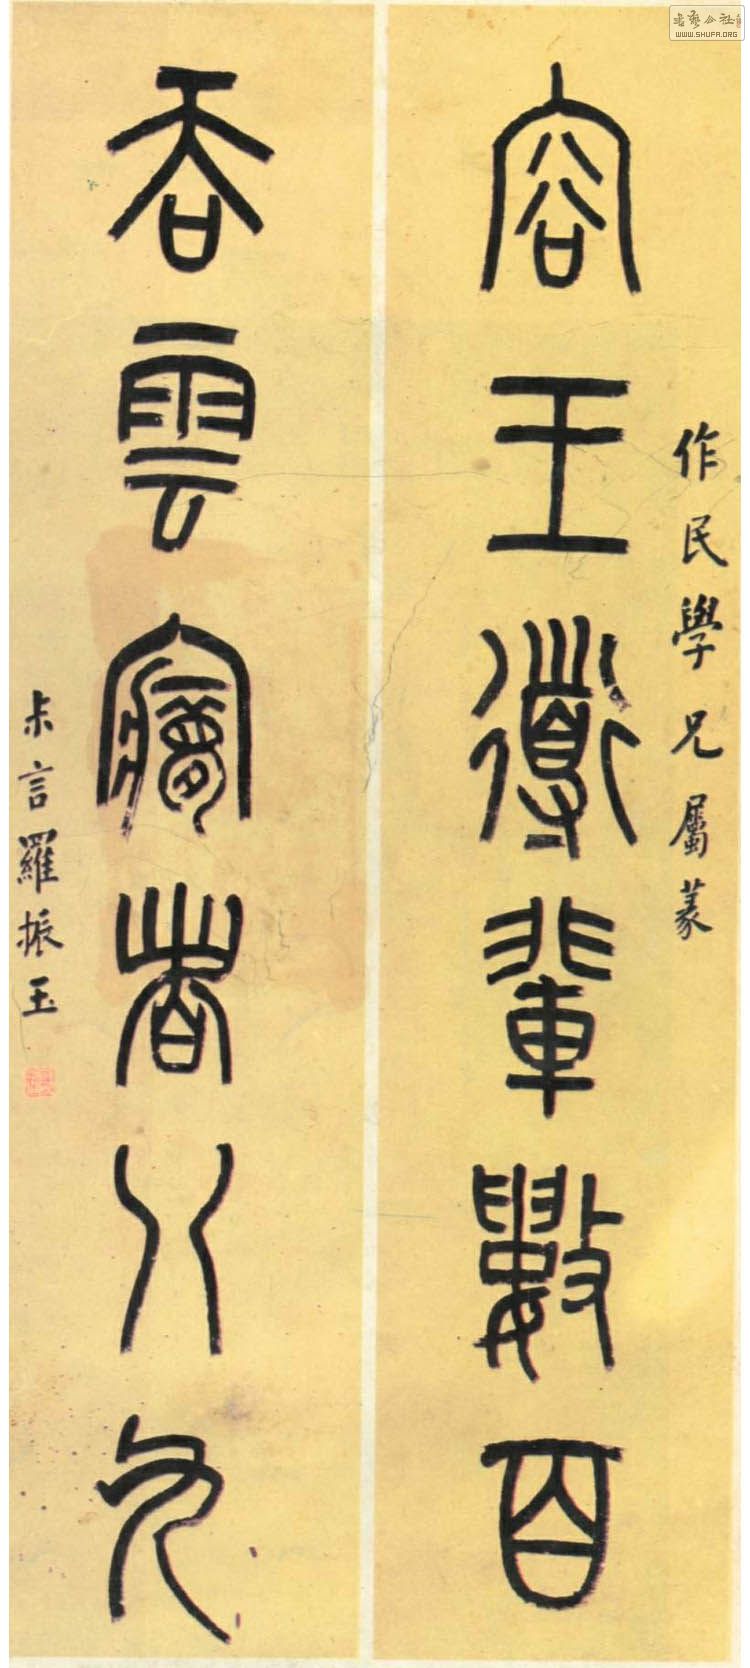 作民學兄屬篆
容王導輩數百
吞雲夢者八九
尗言羅振玉
書藝公社
WWW.SHUFA.ORG